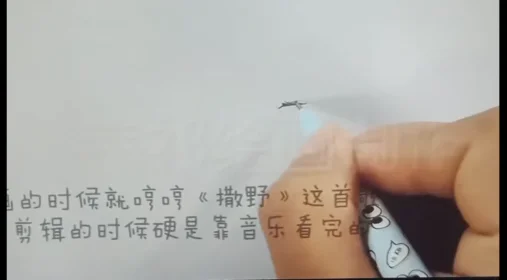 的时候就哼哼《撒野》这首
剪辑的时候硬是靠音乐看完的